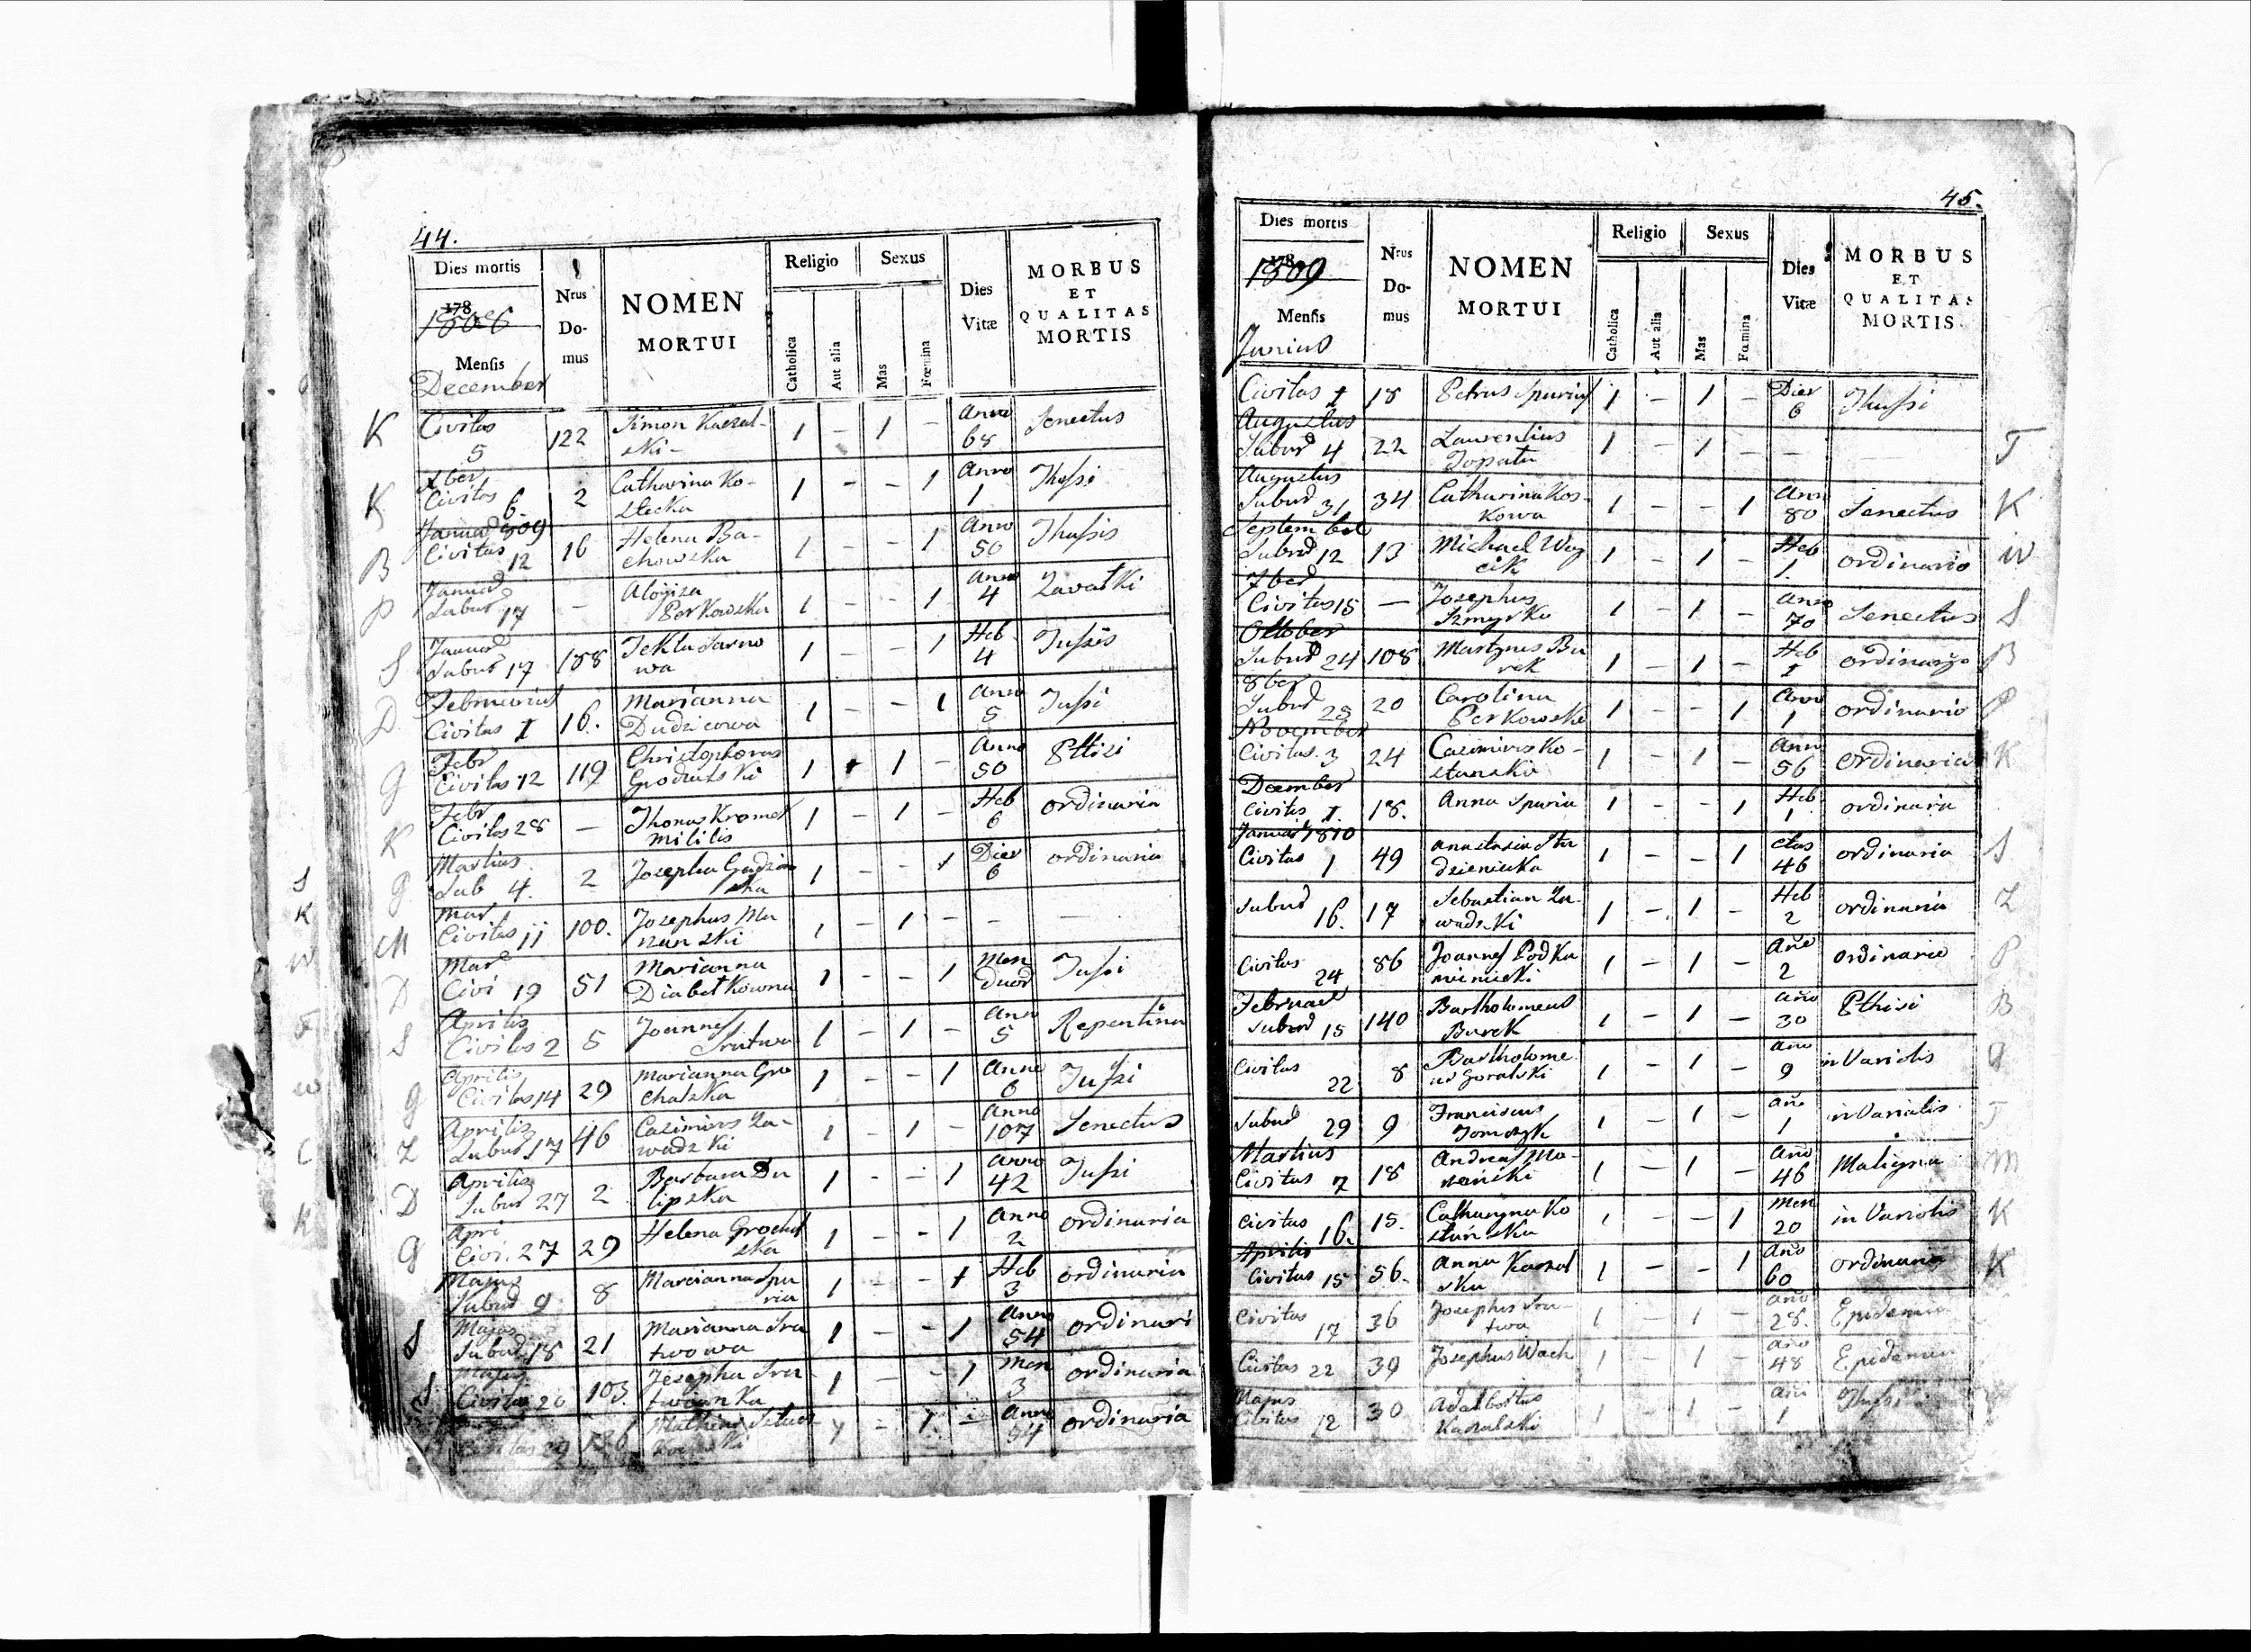 44.
Dies mortis
Nrus Domus
NOMEN MORTUI
Religio
Sexus
Catholica
Aut alia
Mas
Fœmina
Dies Vitæ
MORBUS ET QUALITAS MORTIS
178
Mensis
December
Civitas 5 122 Simon Kaczal-ski- 1 - 1 - Anno 68 Senectus
Xber Civitas 6 2 Catharina Ko-stecka 1 - - 1 Anno 1 Thussi
Januar 809 Civitas 12 16 Helena Ba-chowska 1 - - 1 Anno 50 Thussis
Januar Subur 17 - Aloyiza Perkowska 1 - - 1 Anno 4 Zavatki
Januar Subur 17 188 Tekla Sarno wa 1 - - 1 Heb 4 Tussis
Februarius Civitas 1 16. Marianna Dudzicowa 1 - - 1 Anno 5 Tussi
Febr Civitas 12 119 Christophorus Grodzitski 1 - 1 - Anno 50 Pttisi
Febr Civitas 28 - Thomas Kramer militis 1 - 1 - Heb 6 ordinaria
Martius Sub 4. 2 Josepha ska 1 - - 1 Dier 6 ordinaria
Mar Civitas 11 100. Josephus Ma 1 - 1 - - -
Mar Civi 19 51 Marianna Diabelkowna 1 - - 1 Men duor Tussi
Aprilis Civitas 2 5 Joannes Srutwa 1 - 1 - Ann 5 Repentina
Aprilis Civitas 14 29 Marianna Gro chalska 1 - - 1 Anno 6 Tussi
Aprilis Subur 17 46 Casimirs Za-wadzki 1 - 1 - Anno 107 Senectus
Aprilis Subur 27 2 Barbara Du lipska 1 - - 1 Anno 42 Tussi
Apri Civi. 27 29 Helena Grochal ska 1 - - 1 Anno 2 ordinaria
Majus Subur 9 8 Marianna Spu ria 1 - - 1 Heb 3 ordinaria
Majus Subur 18 21 Marianna Sru twowa 1 - - 1 Anno 54 ordinari
Majus Civitas 20 103. Josepha Sru 1 - - 1 Men 3 ordinaria
Civitas 29 1 - Anno 54 ordinaria
45.
Dies mortis
Nrus Domus
NOMEN MORTUI
Religio
Sexus
Catholica
Aut alia
Mas
Fœmina
Dies Vitæ
MORBUS ET QUALITAS MORTIS
178
1809
Mensis
Junius
Civitas 1 18 Petrus Spurius 1 - 1 - Dier 6 Thussi
Augustus Subur 4 22 Laurentius Topata 1 - 1 - - -
Augustus Subur 31 34 Catharina Kos-kowa 1 - - 1 Ann 80 Senectus
September Subur 12 13 Michael Woy cik 1 - 1 - Heb 1. ordinario
7ber Civitas 15 - Josephus Szmyrko 1 - 1 - Anno 70 Senectus
October Subur 24 108 Martynus Bu rek 1 - 1 - Heb 1
8ber Subur 25 20 Carolina Perkowska 1 - - 1 Ann 1 ordinario
November Civitas. 3 24 Casimirs Ko-stanski 1 - 1 - Ann 56 ordinaria
December Civitas 1. 18. Anna Spuria 1 - - 1 Heb 1 ordinaria
Januar 1810 Civitas 1 49 Anastasia Stu dzienicka 1 - - 1 46 ordinaria
Subur 16. 17 Sebastian Za-wadzki 1 - 1 - Heb 2 ordinaria
Civitas 24 86 Joannes Podka minicki 1 - 1 - Año 2 ordinario
Februar Subur 15 140 Bartholomeus Burek 1 - 1 - año 30 Pthisi
Civitas 22 8 Bartholome us Goralski 1 - 1 - año 9 in Variolis
Subur 29 9 Franciscus Tomczyk 1 - 1 - año 1 in Variolis
Martius Civitas 7 18 Andreas Mo- 1 - 1 - año 46 Maligna
Civitas 16. 15. Catharyna Ko stańska 1 - - 1 Men 20 in Variolis
Aprilis Civitas 15 56. Anna Kaczal ska 1 - - 1 año 60 ordinaria
Civitas 17 36 Josephus Sru-twa 1 - 1 - año 28. Epidemia
Civitas 22 39 Josephus Wach 1 - 1 - año 48 Epidemia
Majus Civitas 12 30 Adalbertus Kaczalski 1 - 1 - 1 Thussi